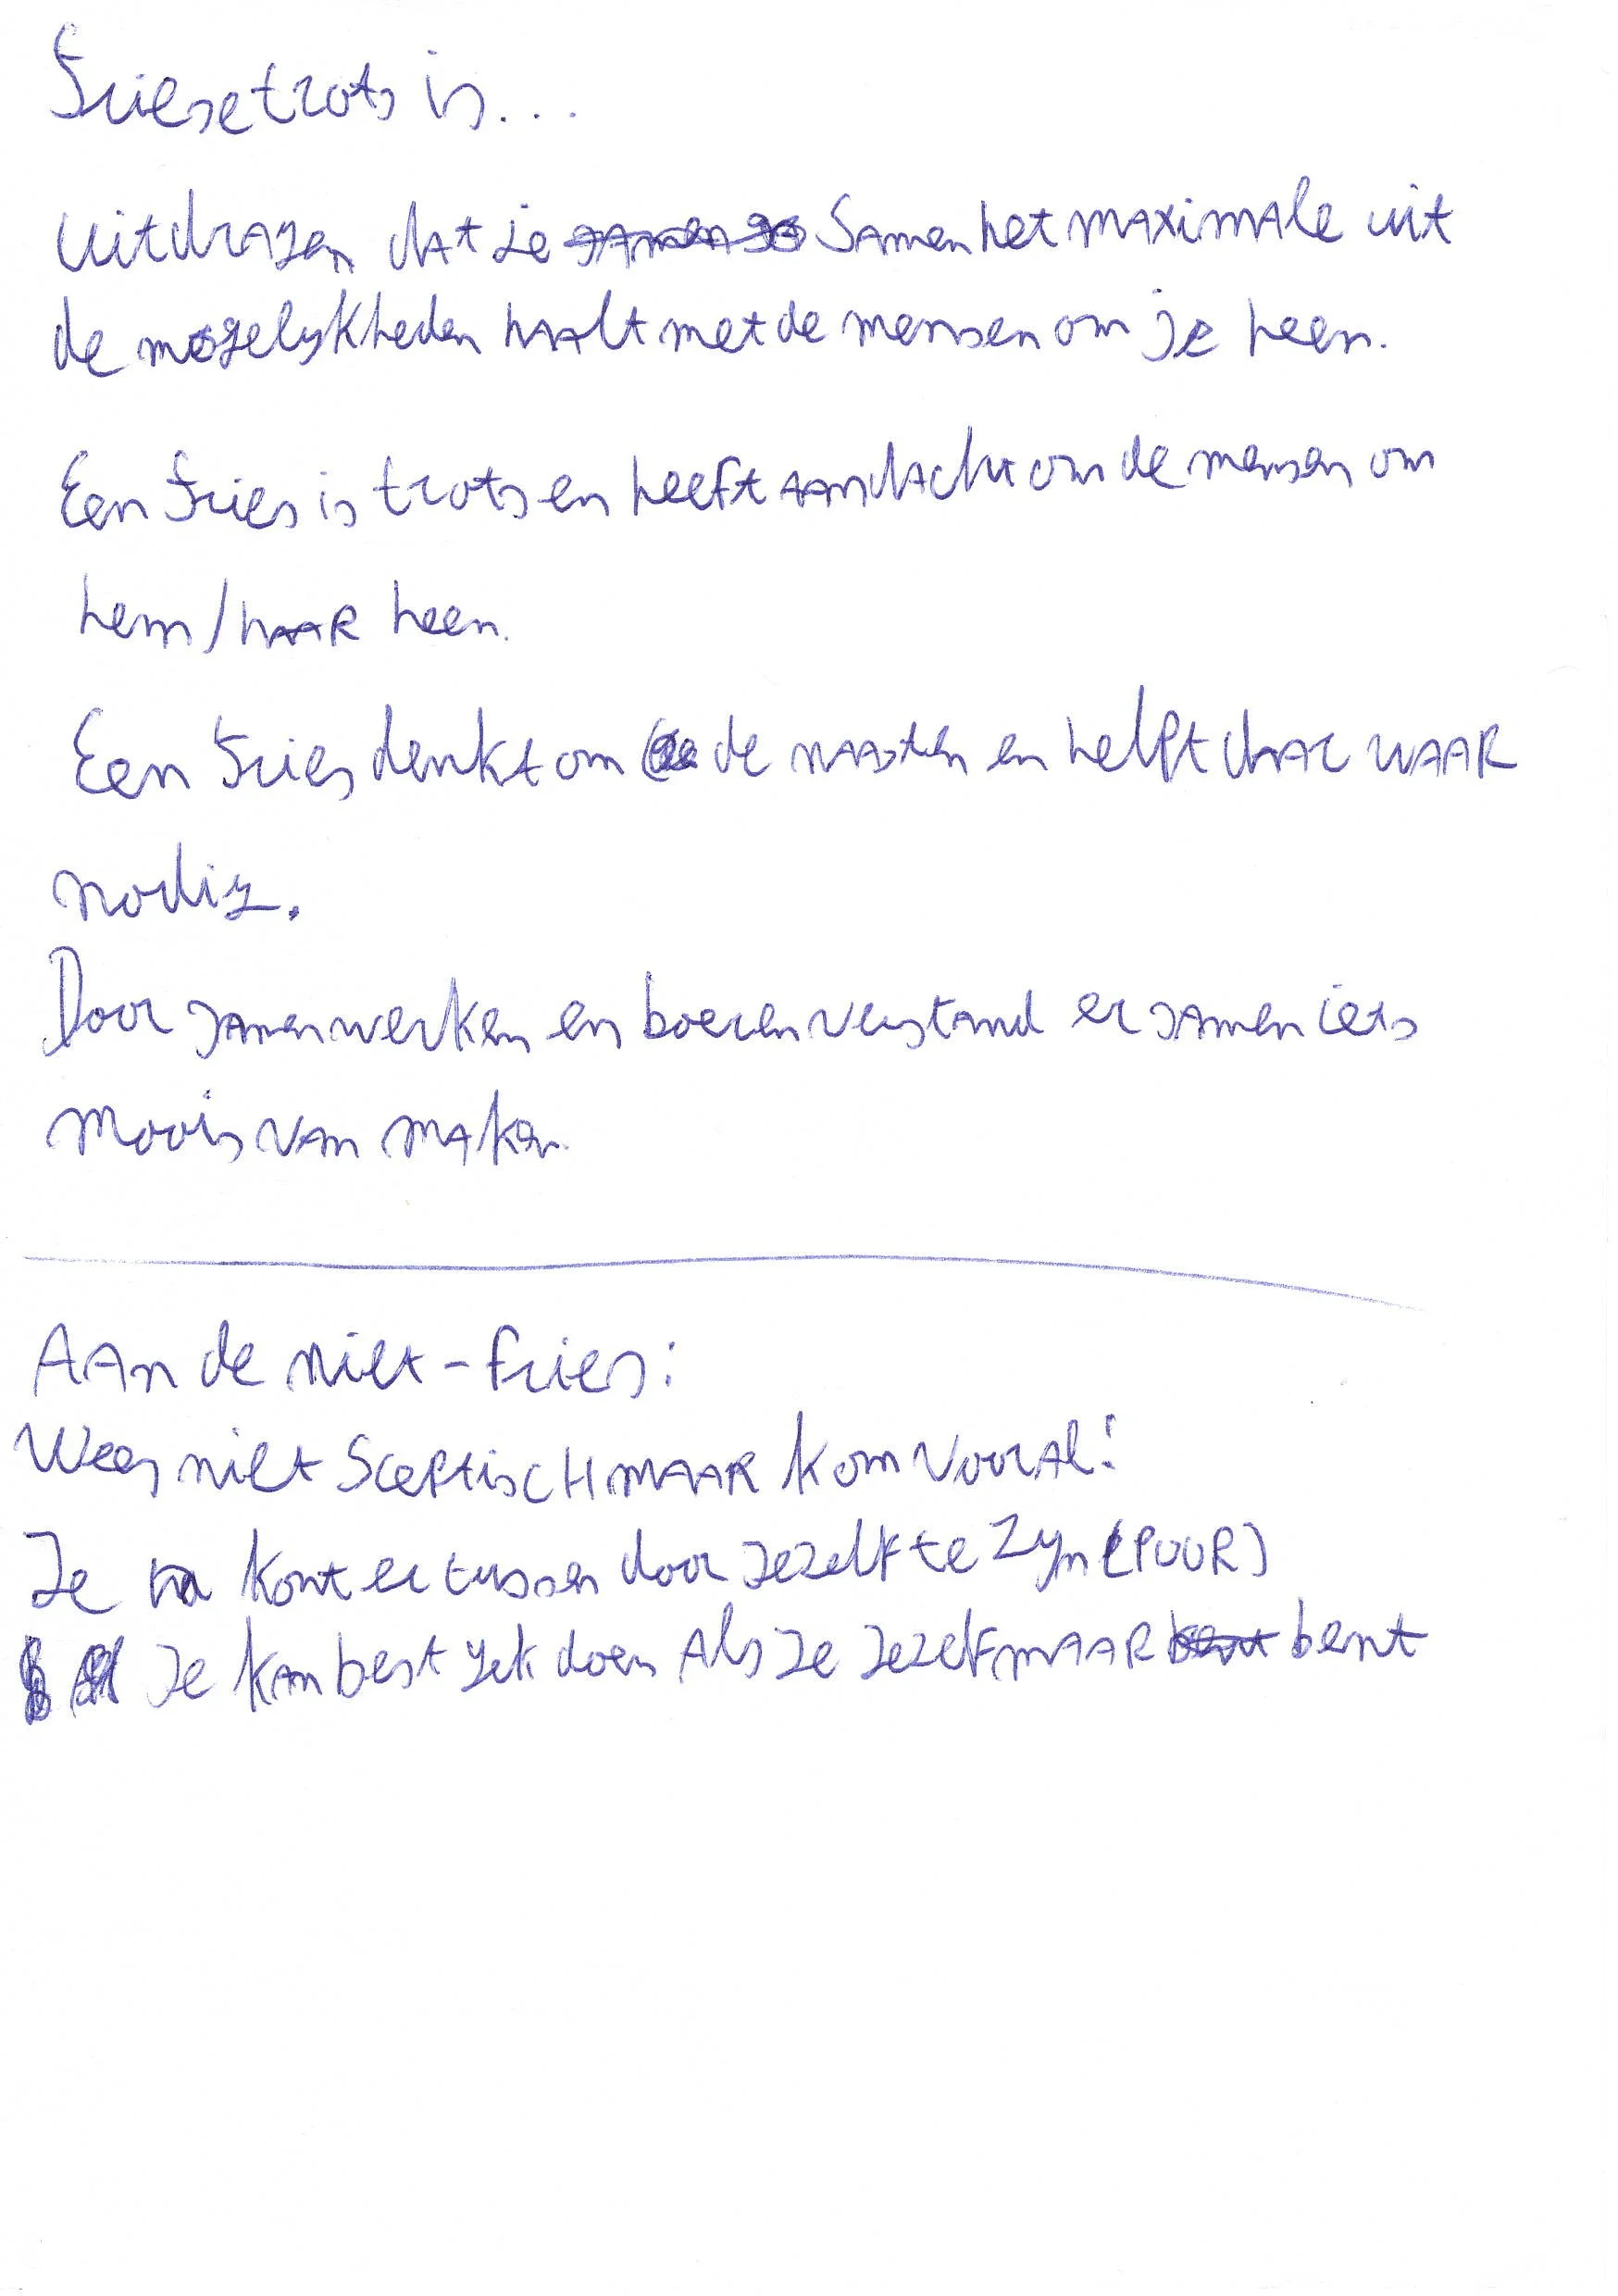 Friese trots is...
Uitdragen dat je samen het maximale uit
de mogelijkheden haalt met de mensen om je heen.
Een Fries is trots en heeft aandacht om de mensen om
hem/haar heen.
Een Fries denkt om de naasten en helpt daar waar
nodig.
Door samenwerken en boerenverstand er samen iets
moois van maken.
Aan de niet-fries:
Wees niet sceptisch maar kom vooral!
Je komt er tussen door jezelf te zijn (puur)
Je kan best gek doen als je jezelf maar bent